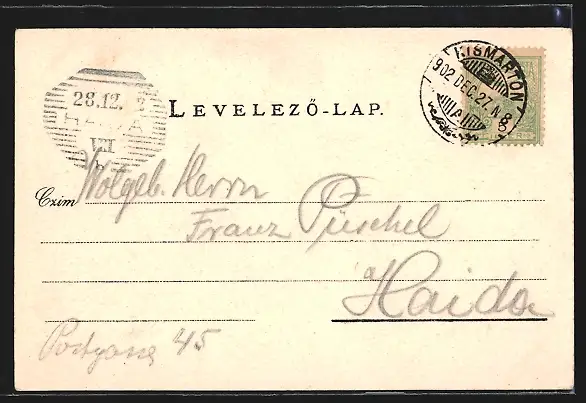 LEVELEZŐ-LAP.
KISMARTON
902 DEC. 27. N 8
28.12. 2
HAIDA
VIII
Czim
Wolgeb. Herrn
Franz Püschel
Haida
Postgasse 45